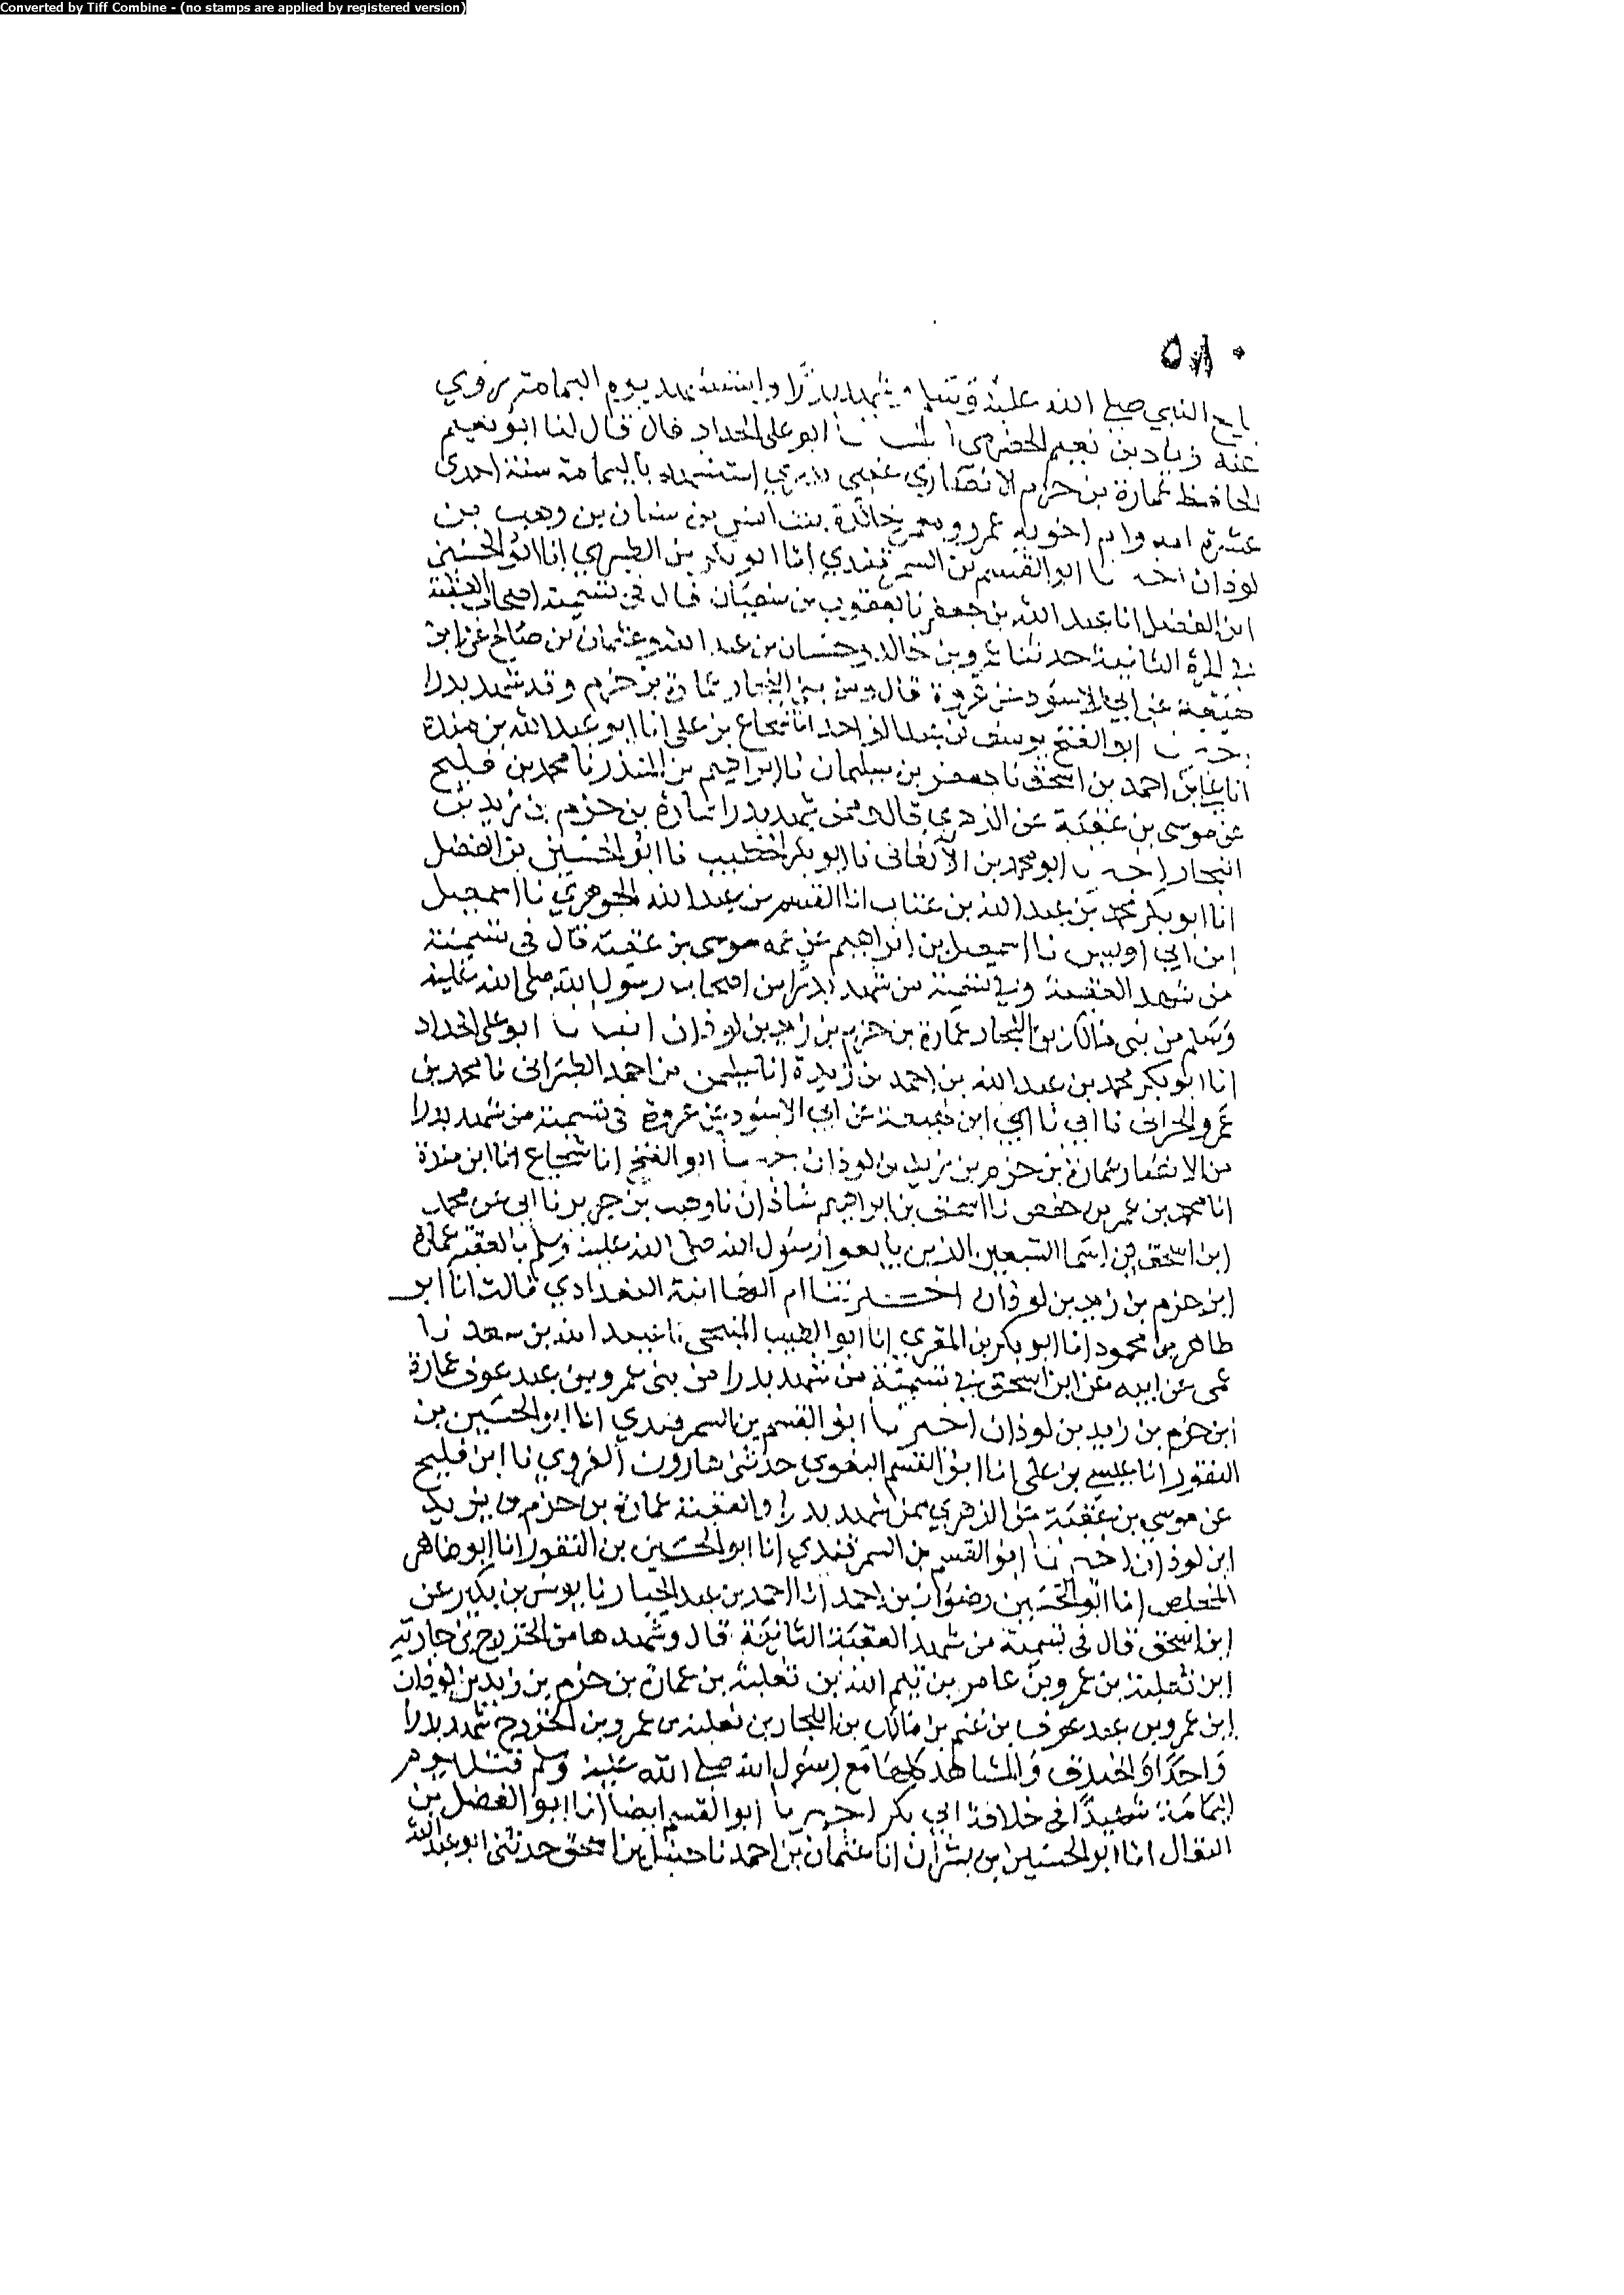 Converted by Tiff Combine - (no stamps are applied by registered version)
٥٨٠
النبي صلى الله عليه شهد بدرا واستشهد يوم اليمامة روى
عنه زياد بن نعيم الحضرمي ابو على الحداد قال قال لنا ابو نعيم
الحافظ عمارة بن حزم الانصاري عقبي بدري استشهد باليمامة سنة احدى
عشرة امه وام اخويه عمرو ومعمر خالدة بنت انس بن سنان بن وهب بن
لوذان ابو القسم بن السمرقندي انا ابو بكر بن الطبري انا ابو الحسين
ابن الفضل انا عبد الله بن جعفر نا يعقوب بن سفيان قال في تسمية اصحاب العقبة
في المرة الثانية حدثنا عمرو بن خالد وحسان بن عبد الله وعثمان بن صالح عن ابن
عن ابي الاسود عن عروة قال ومن بني النجار عمارة بن حزم وقد شهد بدرا
ابو الفتح يوسف بن عبد الواحد انا شجاع بن علي انا ابو عبد الله بن مندة
احمد بن اسحق نا جعفر بن سليمان نا ابراهيم بن المنذر نا محمد بن فليح
عن موسى بن عقبة عن الزهري قال ممن شهد بدرا عمارة بن حزم بن زيد بن
النجار ابو محمد بن الاكفاني نا ابو بكر الخطيب نا ابو الحسين بن الفضل
انا ابو بكر محمد بن عبد الله بن عتاب انا القسم بن عبد الله الجوهري نا اسمعيل
ابن ابي اويس نا اسمعيل بن ابراهيم عن عمه موسى بن عقبة قال في تسمية
من شهد العقبة وفي تسمية من شهد بدرا من اصحاب رسول الله صلى الله عليه
وسلم من بني مالك بن النجار عمارة بن حزم بن زيد بن لوذان انبانا ابو على الحداد
انا ابو بكر محمد بن عبد الله بن احمد بن ريدة انا سليمن بن احمد الطبراني نا محمد بن
عمرو الحراني نا ابي نا ابن لهيعة عن ابي الاسود عن عروة في تسمية من شهد بدرا
من الانصار عمارة بن حزم بن زيد بن لوذان ابو الفتح انا شجاع انا ابن مندة
انا محمد بن عمر بن حفص نا اسحق بن ابراهيم شاذان نا وهب بن جرير نا ابي عن محمد
ابن اسحق في اسما السبعين الذين بايعوا رسول الله صلى الله عليه وسلم بالعقبة عمارة
ابن حزم بن زيد بن لوذان اخبرتنا ام البها ابنة البغدادي قالت انا ابو
طاهر بن محمود انا ابو بكر بن المقري انا ابو الطيب المنبجي نا عبيد الله بن سعد نا
عمى عن ابيه عن ابن اسحق في تسمية من شهد بدرا من بنى عمرو بن عبد عوف عمارة
ابن حزم بن زيد بن لوذان اخبرنا ابو القسم بن السمرقندي انا ابو الحسين بن
النقور انا عيسى بن على انا ابو القسم البغوي حدثني هارون الفروي نا ابن فليح
عن موسى بن عقبة عن الزهري ممن شهد بدرا والعقبة عمارة بن حزم بن يزيد
ابن لوذان اخبرنا ابو القسم بن السمرقندي انا ابو الحسين بن النقور انا ابو طاهر
المخلص انا ابو الحسين رضوان بن احمد انا احمد بن عبد الجبار نا يونس بن بكير عن
ابن اسحق قال في تسمية من شهد العقبة الثانية قال وشهدها من الخزرج بن حارثة
ابن ثعلبة بن عمرو بن عامر بن تيم الله بن ثعلبة بن عمارة بن حزم بن زيد بن لوذان
ابن عمرو بن عبد عوف بن غنم بن مالك بن النجار بن ثعلبة بن عمرو بن الخزرج شهد بدرا
واحدا والخندق والمشاهد كلها مع رسول الله صلى الله عليه وسلم قتل يوم
اليمامة شهيدا في خلافة ابي بكر اخبرنا ابو القسم ايضا انا ابو الفضل بن
البقال انا ابو الحسين بن بشران انا عثمان بن احمد نا حنبل بن اسحق حدثني ابو عبد الله